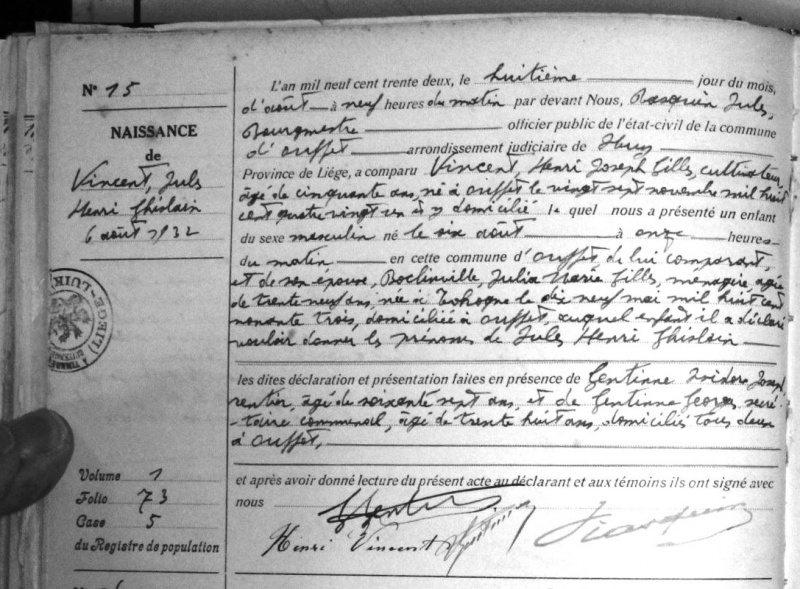 N° 15
NAISSANCE
de
Vincent, Juls
Henri Ghislain
6 août 1932
Volume 1
Folio 73
Case 5
du Registre de population
L'an mil neuf cent trente deux, le huitième jour du mois,
d'août à neuf heures du matin par devant Nous, Pasquin Jules,
Bourgmestre officier public de l'état-civil de la commune
d'Ouffet arrondissement judiciaire de Huy
Province de Liége, a comparu Vincent, Henri Joseph Gills, cultivateur,
âgé de cinquante ans, né à Ouffet le vingt sept novembre mil huit
cent quatre vingt un et y domicilié le quel nous a présenté un enfant
du sexe masculin né le six août à onze heures
du matin en cette commune d'Ouffet de lui comparant,
et de son épouse, Julia Marie ménagère, âgée
de trente neuf ans, née à Tohogne le dix neuf mai mil huit cent
nonante trois, domiciliée à Ouffet, auquel enfant il a déclaré
vouloir donner les prénoms de Jules Henri Ghislain
les dites déclaration et présentation faites en présence de Gentinne Isidore Joseph
rentier, âgé de soixante sept ans, et de Gentinne Georges, secré-
taire communal, âgé de trente huit ans, domiciliés tous deux
à Ouffet,
et après avoir donné lecture du présent acte au déclarant et aux témoins ils ont signé avec
nous
Henri Vincent